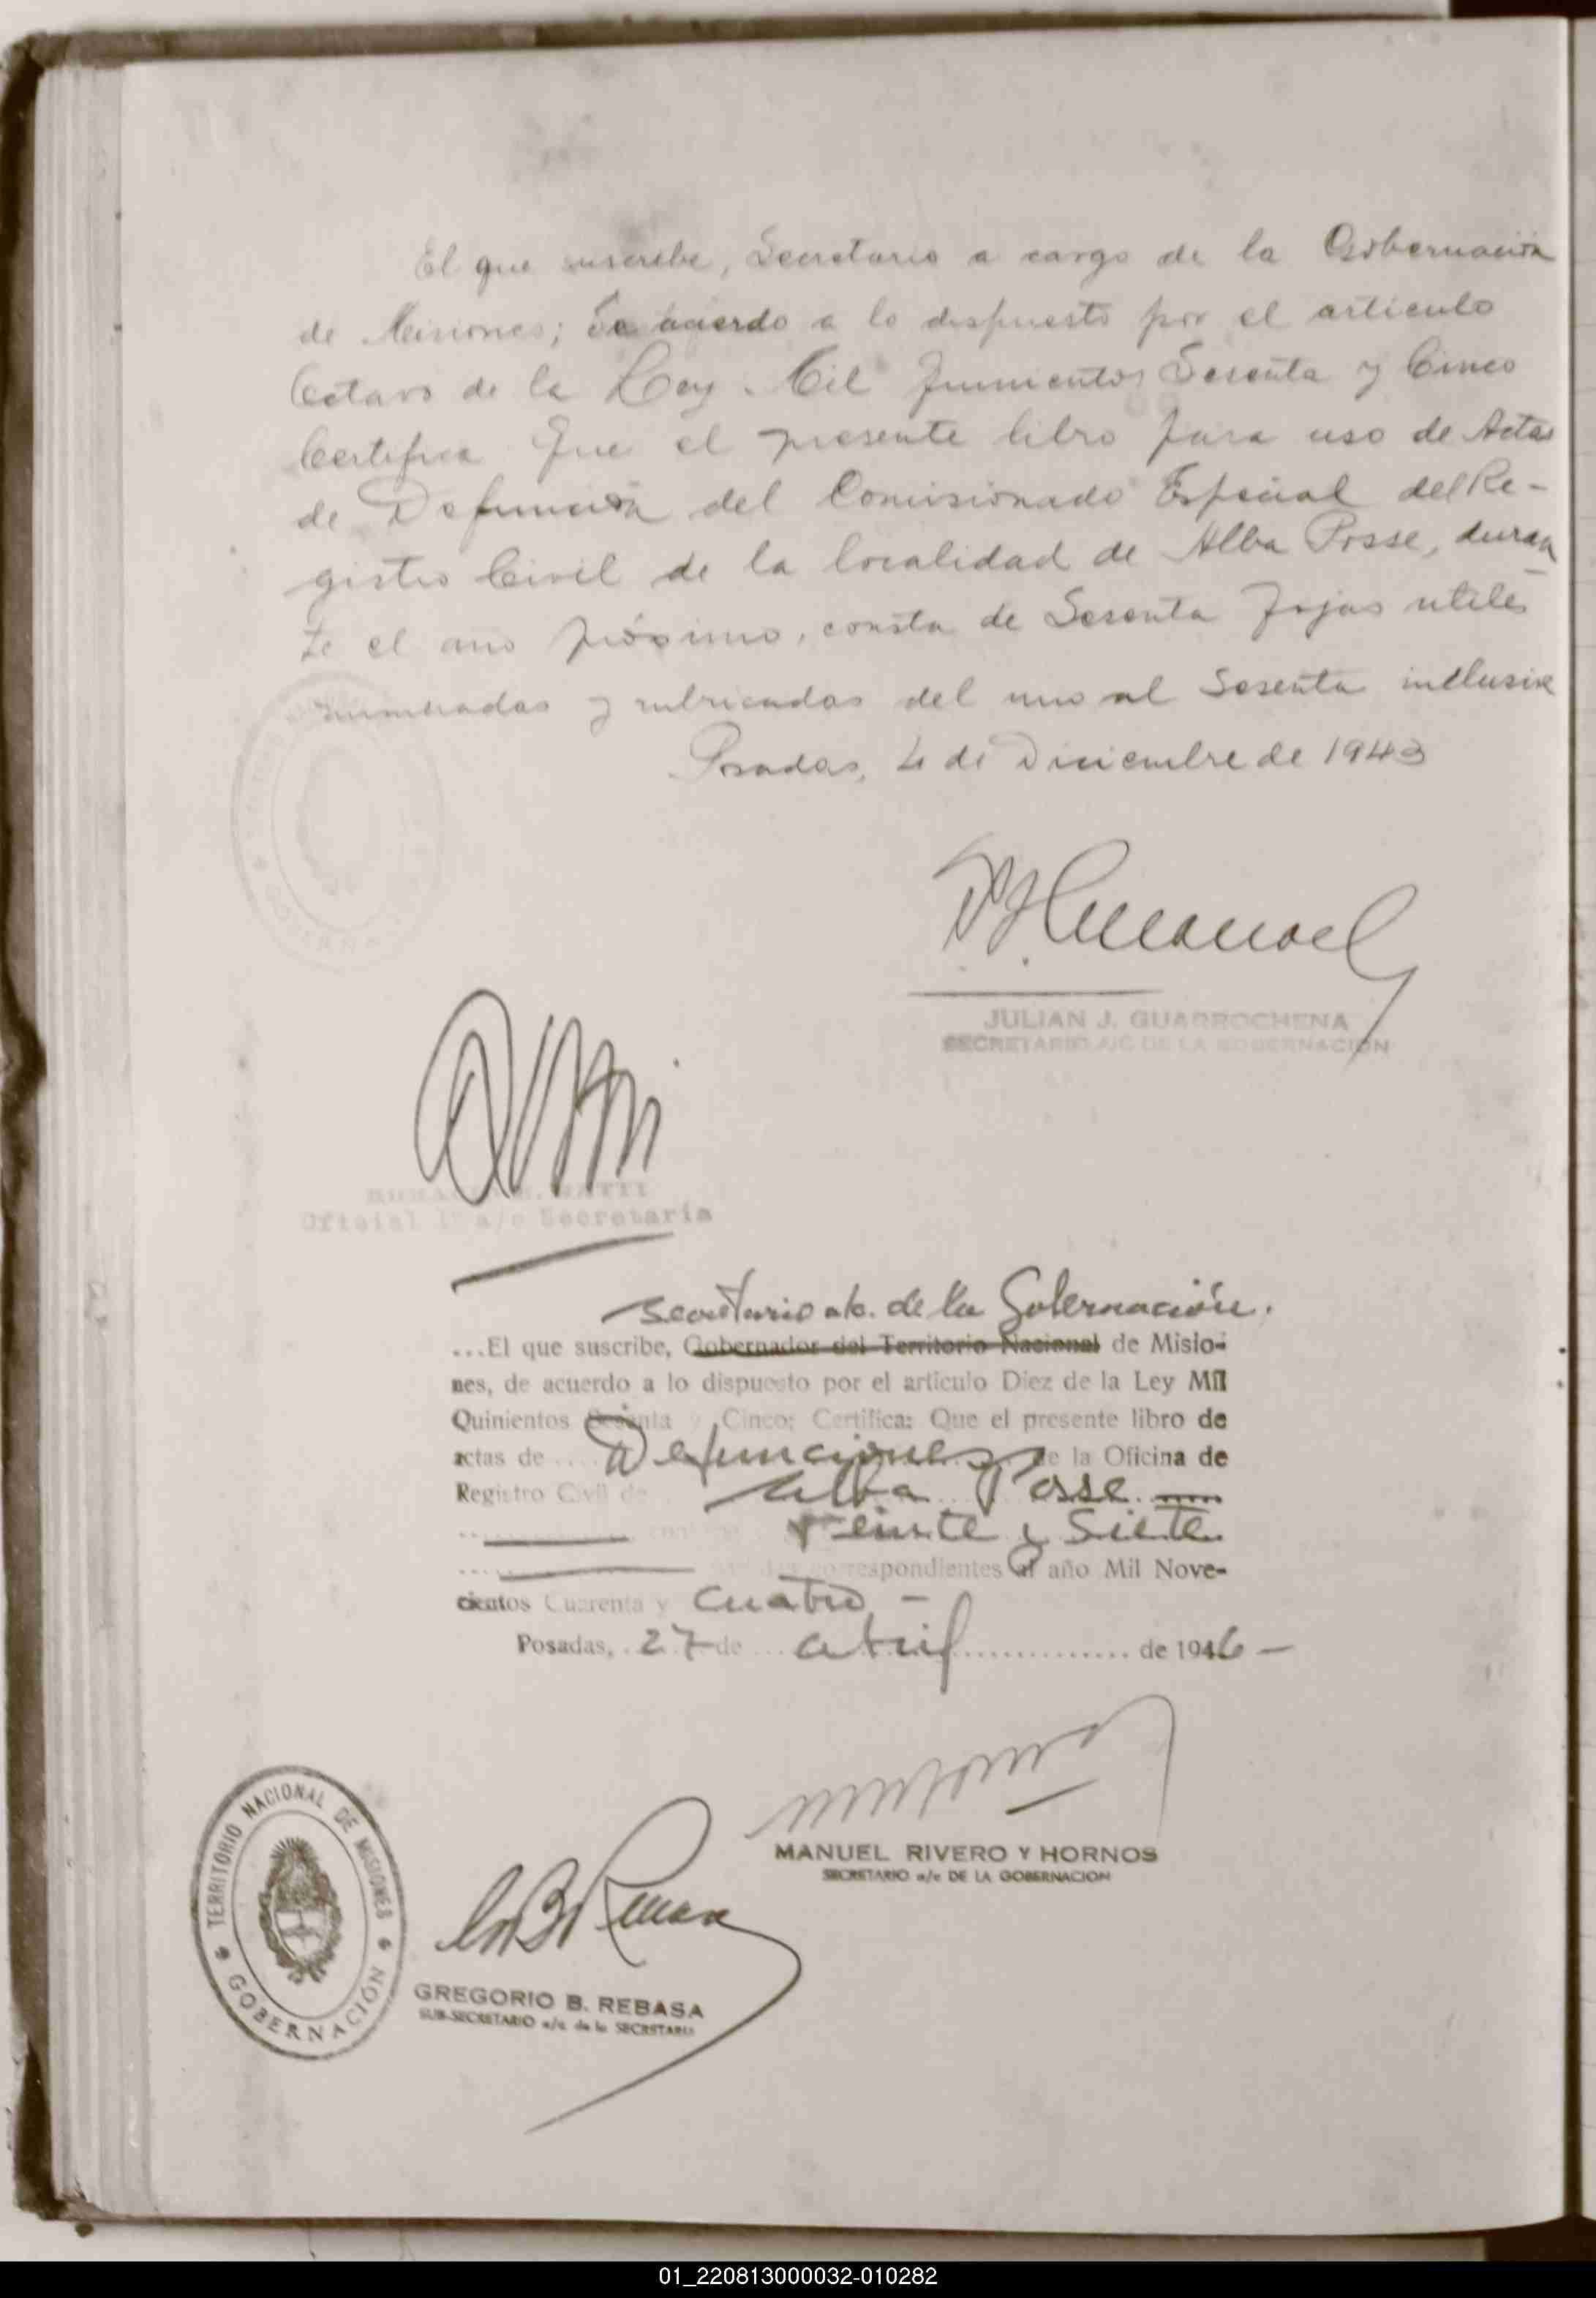 El que suscribe, Secretario a cargo de la Gobernación
de Misiones; De acuerdo a lo dispuesto por el articulo
Octavo de la Ley Mil Quinientos Sesenta y Cinco
Certifica Que el presente libro para uso de Actas
de Defunción del Comisionado Especial del Re-
gistro Civil de la localidad de Alba Posse, duran
te el año próximo, consta de Sesenta fojas utiles
numeradas y rubricadas del uno al Sesenta inclusive
Posadas, 4 de Diciembre de 1943
JULIAN J. GUARROCHENA
SECRETARIO A/C DE LA GOBERNACIÓN
Oficial 1º a/c Secretaría
Secretario a/c. de la Gobernación.
...El que suscribe, Gobernador del Territorio Nacional de Misio-
nes, de acuerdo a lo dispuesto por el artículo Diez de la Ley Mil
Quinientos Sesenta y Cinco; Certifica: Que el presente libro de
actas de .... Defunciones de la Oficina de
Registro Civil de Alba Posse
Veinte y Siete
correspondientes al año Mil Nove-
cientos Cuarenta y Cuatro -
Posadas, 27 de abril de 1946 -
MANUEL RIVERO Y HORNOS
SECRETARIO a/c DE LA GOBERNACION
TERRITORIO NACIONAL DE MISIONES
GOBERNACIÓN
GREGORIO B. REBASA
SUB-SECRETARIO a/c de la SECRETARIA
01_220813000032-010282